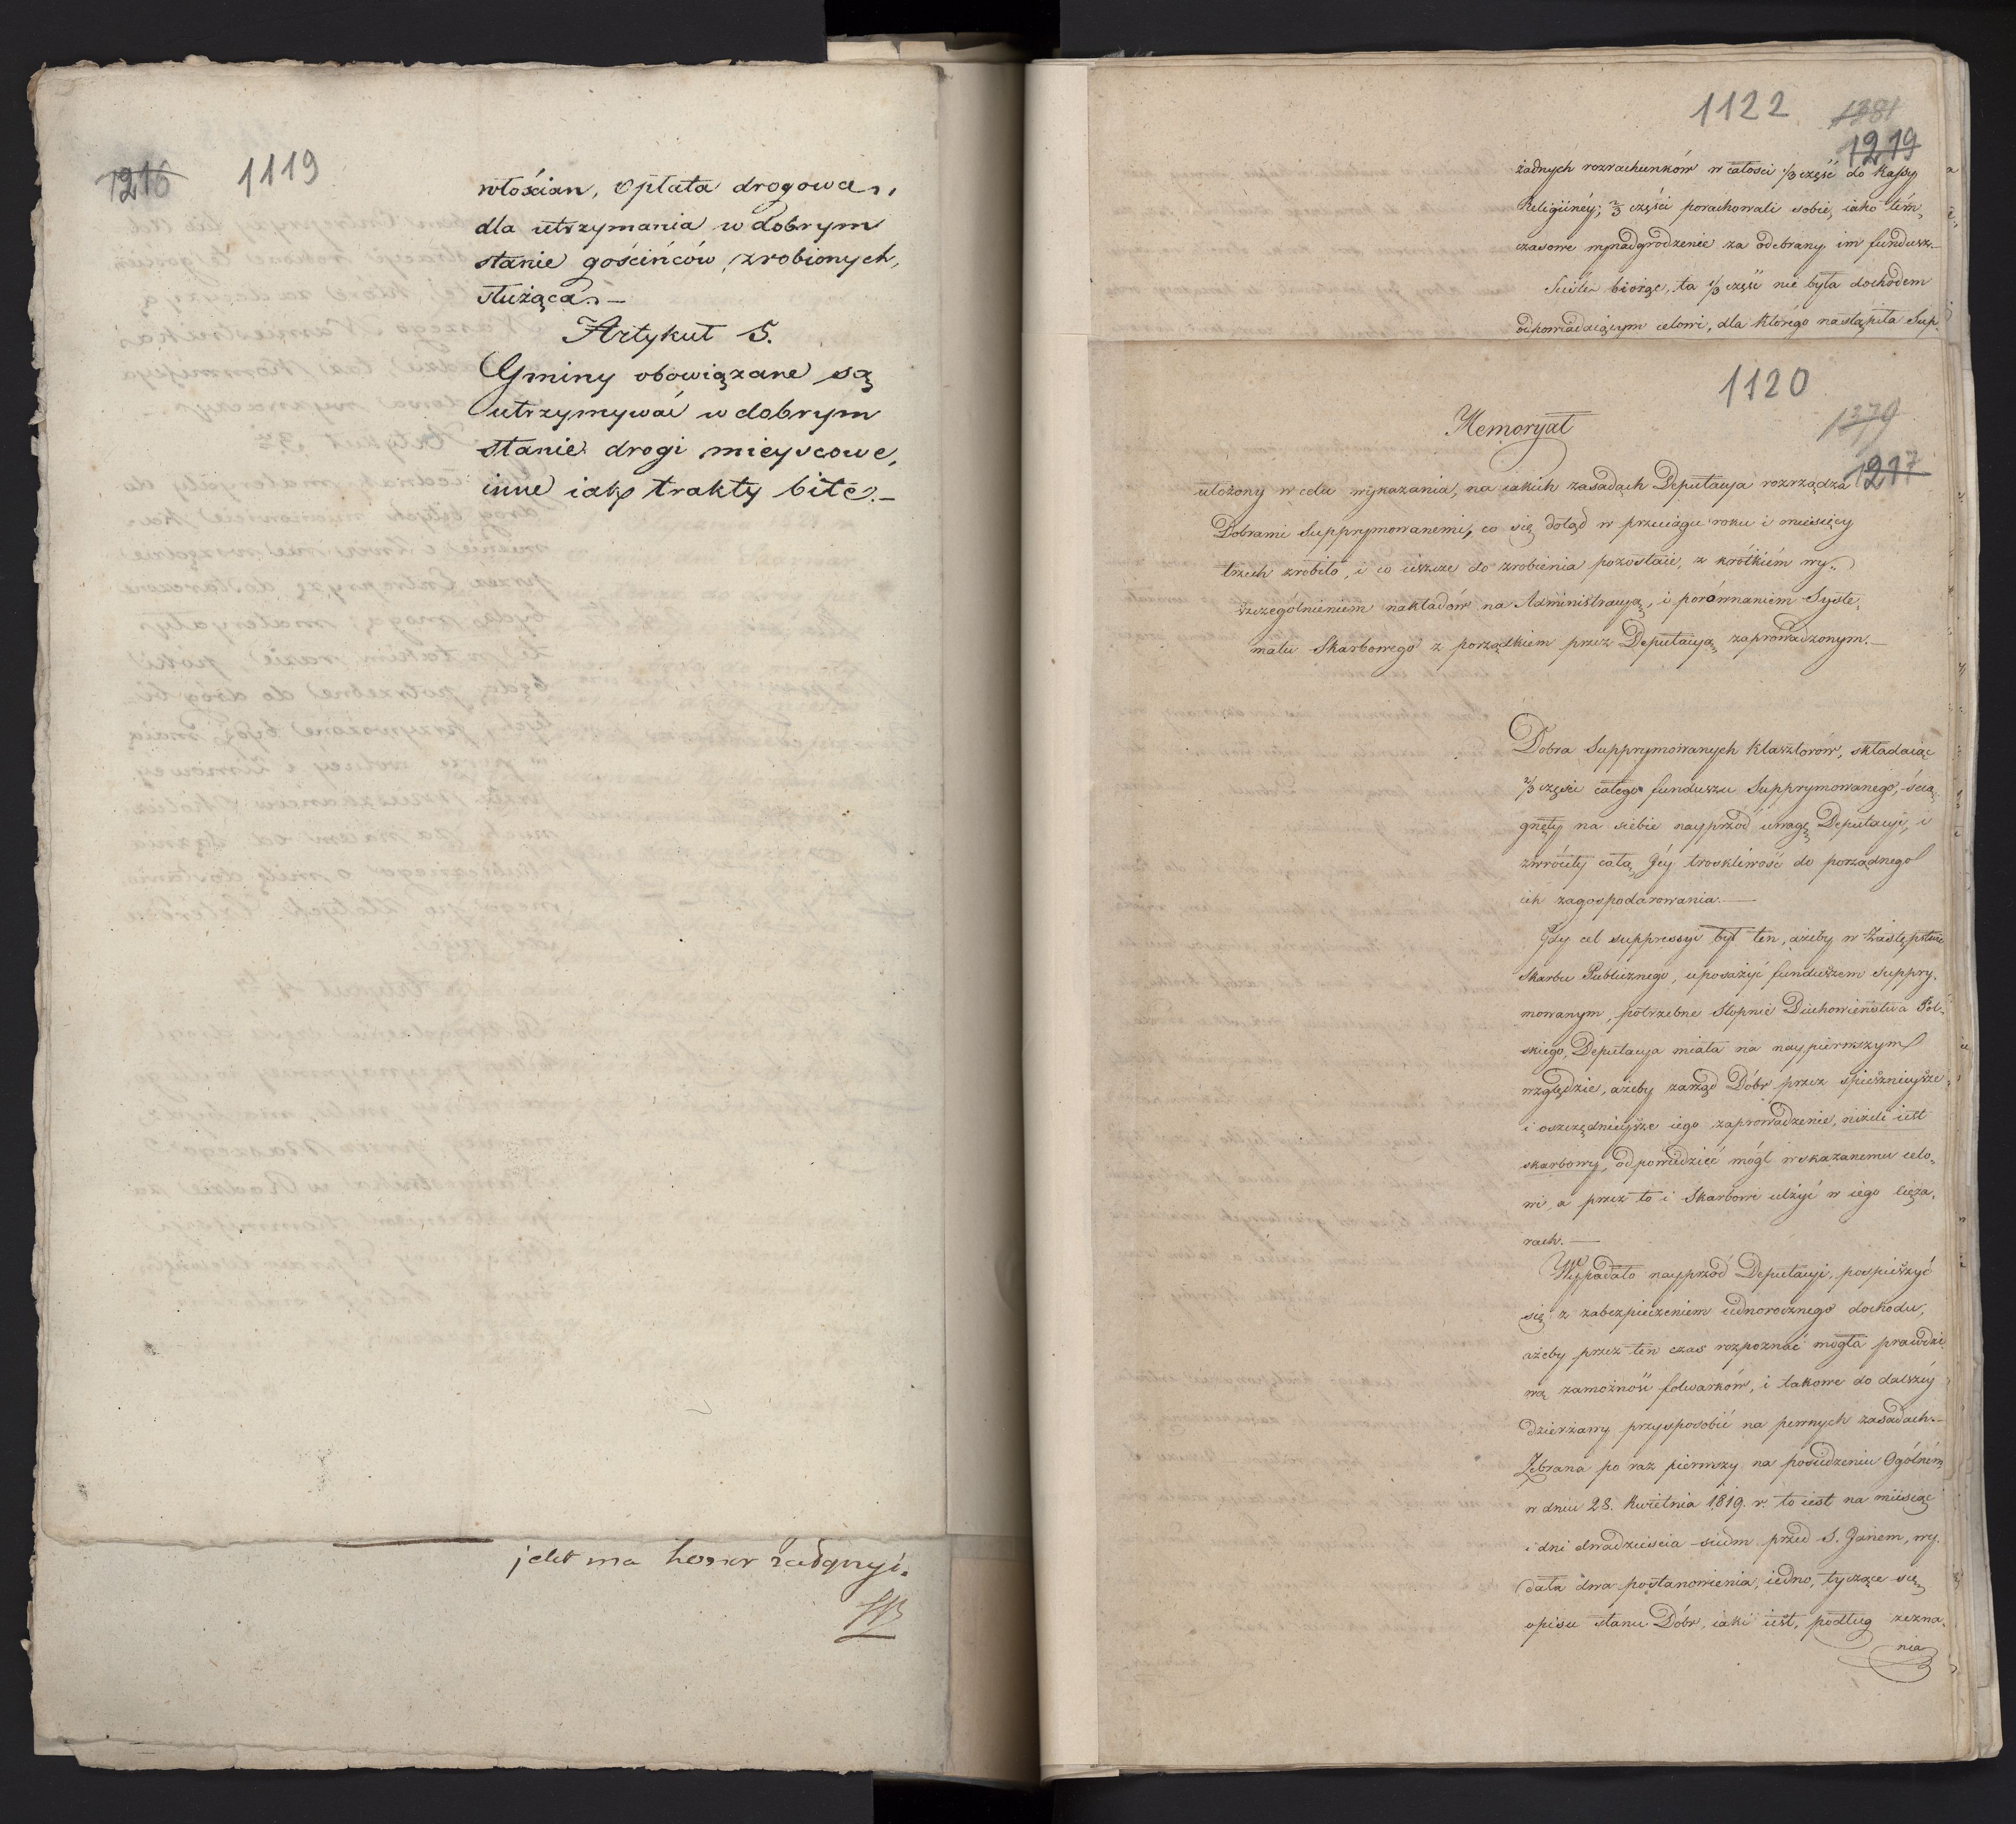 1216 1119
włościan, opłata drogowa,
dla utrzymania w dobrym
stanie gościńców zrobionych,
służąca.—
Artykuł 5.
Gminy obowiązane są
utrzymywać w dobrym
stanie drogi mieyscowe,
inne iak trakty bite.—
jest ma honor
1122 1381
1219
żadnych rozrachunków w całości 1/3 część do Kassy
Religiiney; 2/3 części porachowali sobie, iako tém„
czasowe wynadgrodzenie za odebrany im fundusz.—
Ściśle biorąc, ta 1/3 część nie była dochodem
odpowiadaiącym celowi, dla którego nastąpiła Sup„
1120
1379
1217
Memoryał
ułożony w celu wykazania, na iakich zasadach Deputacya rozrządza
Dobrami Supprymowanemi, co się dotąd w przeciągu roku i miesięcy
trzech zrobiło, i co ieszcze do zrobienia pozostaie, z krótkiém wy„
szczególnieniem nakładów na Administracyą, i porównaniem Syste„
matu Skarbowego z porządkiem przez Deputacyą zaprowadzonym.—
Dobra Supprymowanych Klasztorów, składaiąc
2/3 części całego funduszu Supprymowanego, ścią„
gnęły na siebie nayprzód uwagę Deputacyi, i
zwróciły całą Jéy troskliwość do porządnego
ich zagospodarowania.—
Gdy cel suppressyi był ten, ażeby w Zastępstwie
Skarbu Publicznego, uposażyć funduszem suppry„
mowanym, potrzebne Stopnie Duchowieństwa Pol„
skiego, Deputacya miała na naypierwszym
względzie, ażeby zarząd Dóbr przez spiesznieysze
i oszczędnieysze iego zaprowadzenie, niżeli iest
skarbowy, odpowiedzieć mógł wskazanemu celo„
wi, a przez to i Skarbowi ulżyć w iego cięża„
rach.—
Wypadało nayprzód Deputacyi, pospieszyć
się z zabezpieczeniem iednorocznego dochodu,
ażeby przez ten czas rozpoznać mogła prawdzi„
wą zamożność folwarków, i takowe do dalszéy
dzierżawy przysposobić na pewnych zasadach.—
Zebrana po raz pierwszy na posiedzeniu Ogólném
w dniu 28. Kwietnia 1819. r. to iest na miesiąc
i dni dwadzieścia siedm przed S. Janem, wy„
dała dwa postanowienia, iedno, tyczące się
opisu stanu Dóbr, iaki iest, podług zezna„
nia